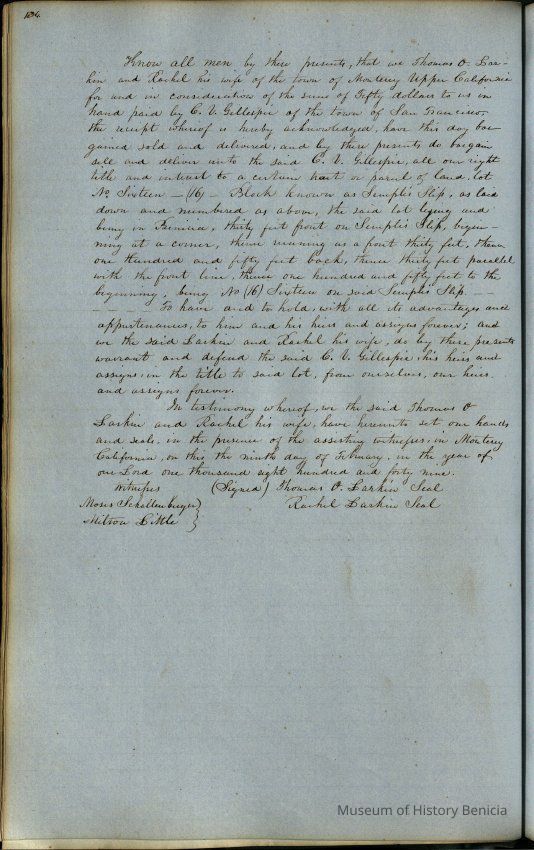 104.
Know all men by these presents, that we Thomas O. Lar-
kin and Rachel his wife of the town of Monterey Upper California
for and in consideration of the sum of Fifty dollars to us in
hand paid by C. V. Gillespie of the town of San Francisco
the receipt whereof is hereby acknowledged, have this day bar-
gained sold and delivered, and by these presents do bargain
sell and deliver unto the said C. V. Gillespie, all our right
title and interest to a certain tract or parcel of land, lot
No. Sixteen - (16) - Block known as Semple's Slip, as laid
down and numbered as above, the said lot lying and
being in Benicia, thirty feet front on Semple's Slip, begin-
ning at a corner, thence running as a front thirty feet, thence
one hundred and fifty feet back, thence thirty feet parallel
with the front line, thence one hundred and fifty feet to the
beginning, being No (16) Sixteen on said Semple's Slip. - -
- - - - - To have and to hold, with all its advantages and
appurtenances, to him and his heirs and assigns forever; and
we the said Larkin and Rachel his wife, do by these presents
warrant and defend the said C. V. Gillespie, his heirs and
assigns, in the title to said lot, from ourselves, our heirs
and assigns forever.
In testimony whereof, we the said Thomas O
Larkin and Rachel his wife, have hereunto set our hands
and seals, in the presence of the assisting witnesses, in Monterey
California, on this the ninth day of February, in the year of
our Lord one thousand eight hundred and forty nine.
Witnesses (Signed) Thomas O. Larkin Seal
Moses Schallenberger } Rachel Larkin Seal
Milton Little }
Museum of History Benicia